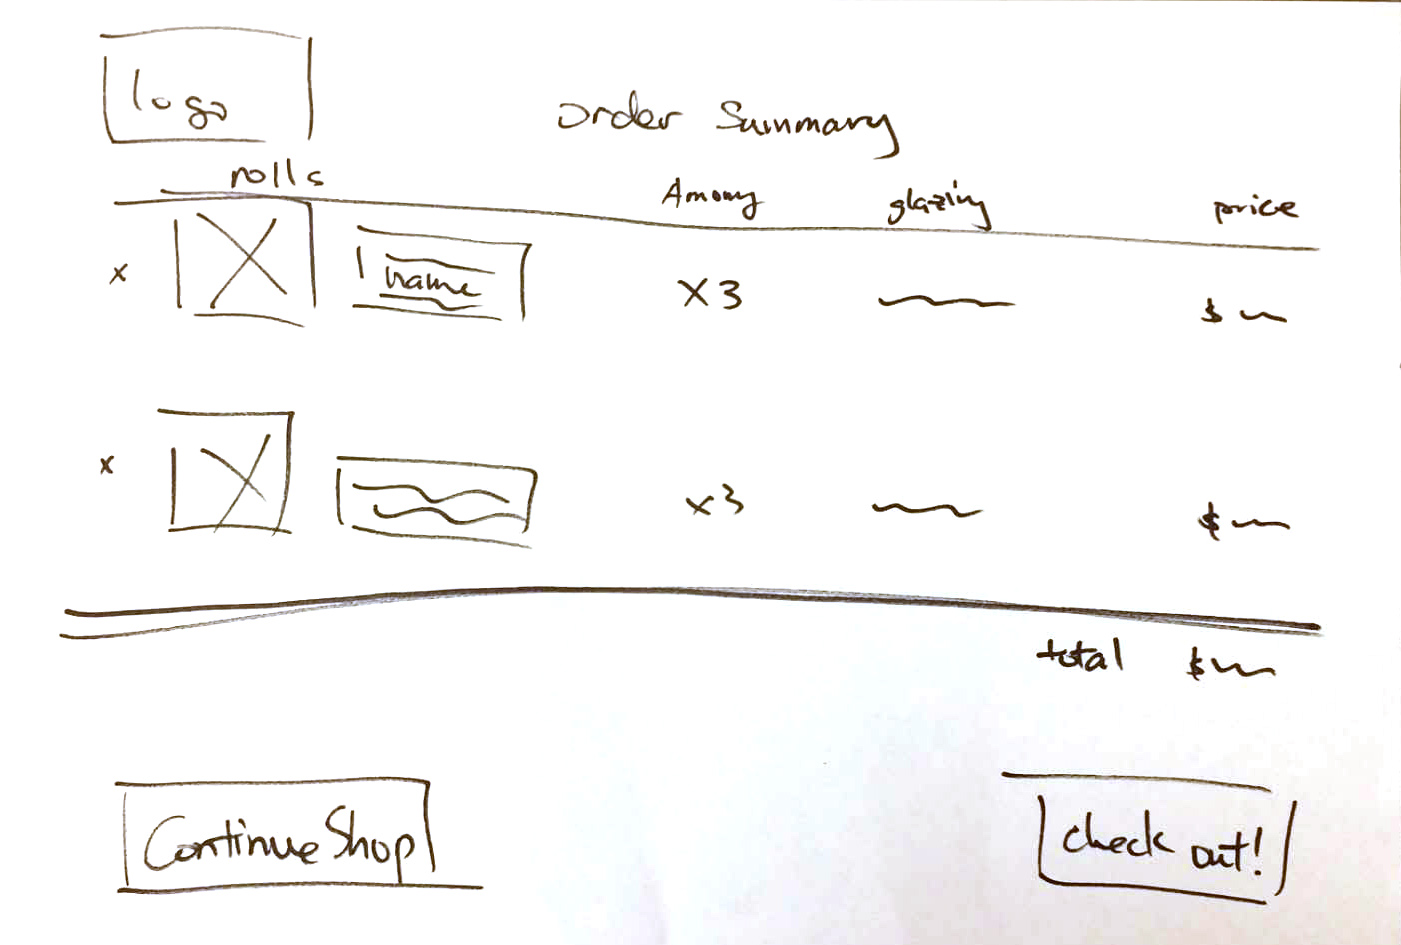 logo
order Summary
rolls
Amony
glazing
price
x
name
x3
$
x
x3
$
total $
Continue Shop
check out!